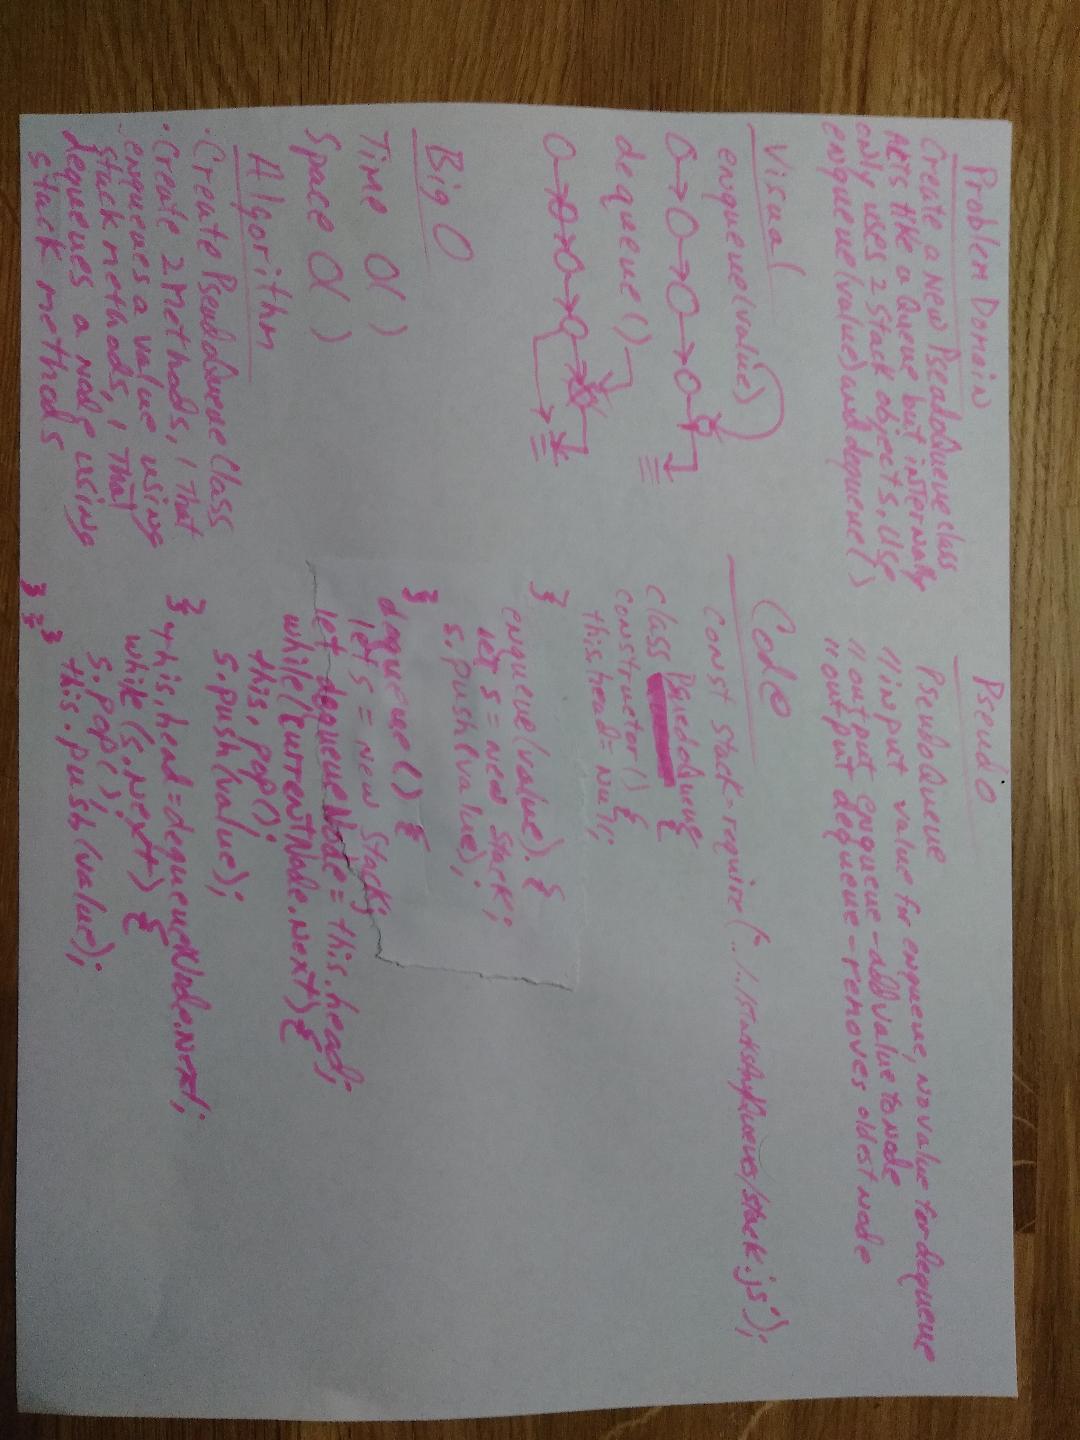 Problem Domain
Create a new PseadoQueue class
Acts like a Queue but internally
only uses 2 Stack objects, Use
enqueue(value) and dequeue()
Visual
enqueue(value)
dequeue()
Big O
Time O( )
Space O( )
Algorithm
· Create PseudoQueue Class
· Create 2 Methods, 1 That
enqueues a value using
stack methods, 1 That
dequeues a Node using
stack methods
Pseudo
PseudoQueue
// input value for enqueue, No value for dequeue
// output enqueue - add value to Node
// output dequeue - removes oldest Node
Code
const stack = require('../../stacksAndQueues/stack.js');
class PsuedoQueue {
constructor() {
this.head = Null;
}
enqueue(value). {
let s = new Stack;
s.push(value);
}
dequeue() {
let s = new Stack;
let dequeueNode = this.head;
while(currentNode.next) {
this.pop();
s.push(value);
}
this.head = dequeueNode.next;
while (s.next) {
s.pop();
this.push(value);
}
} }